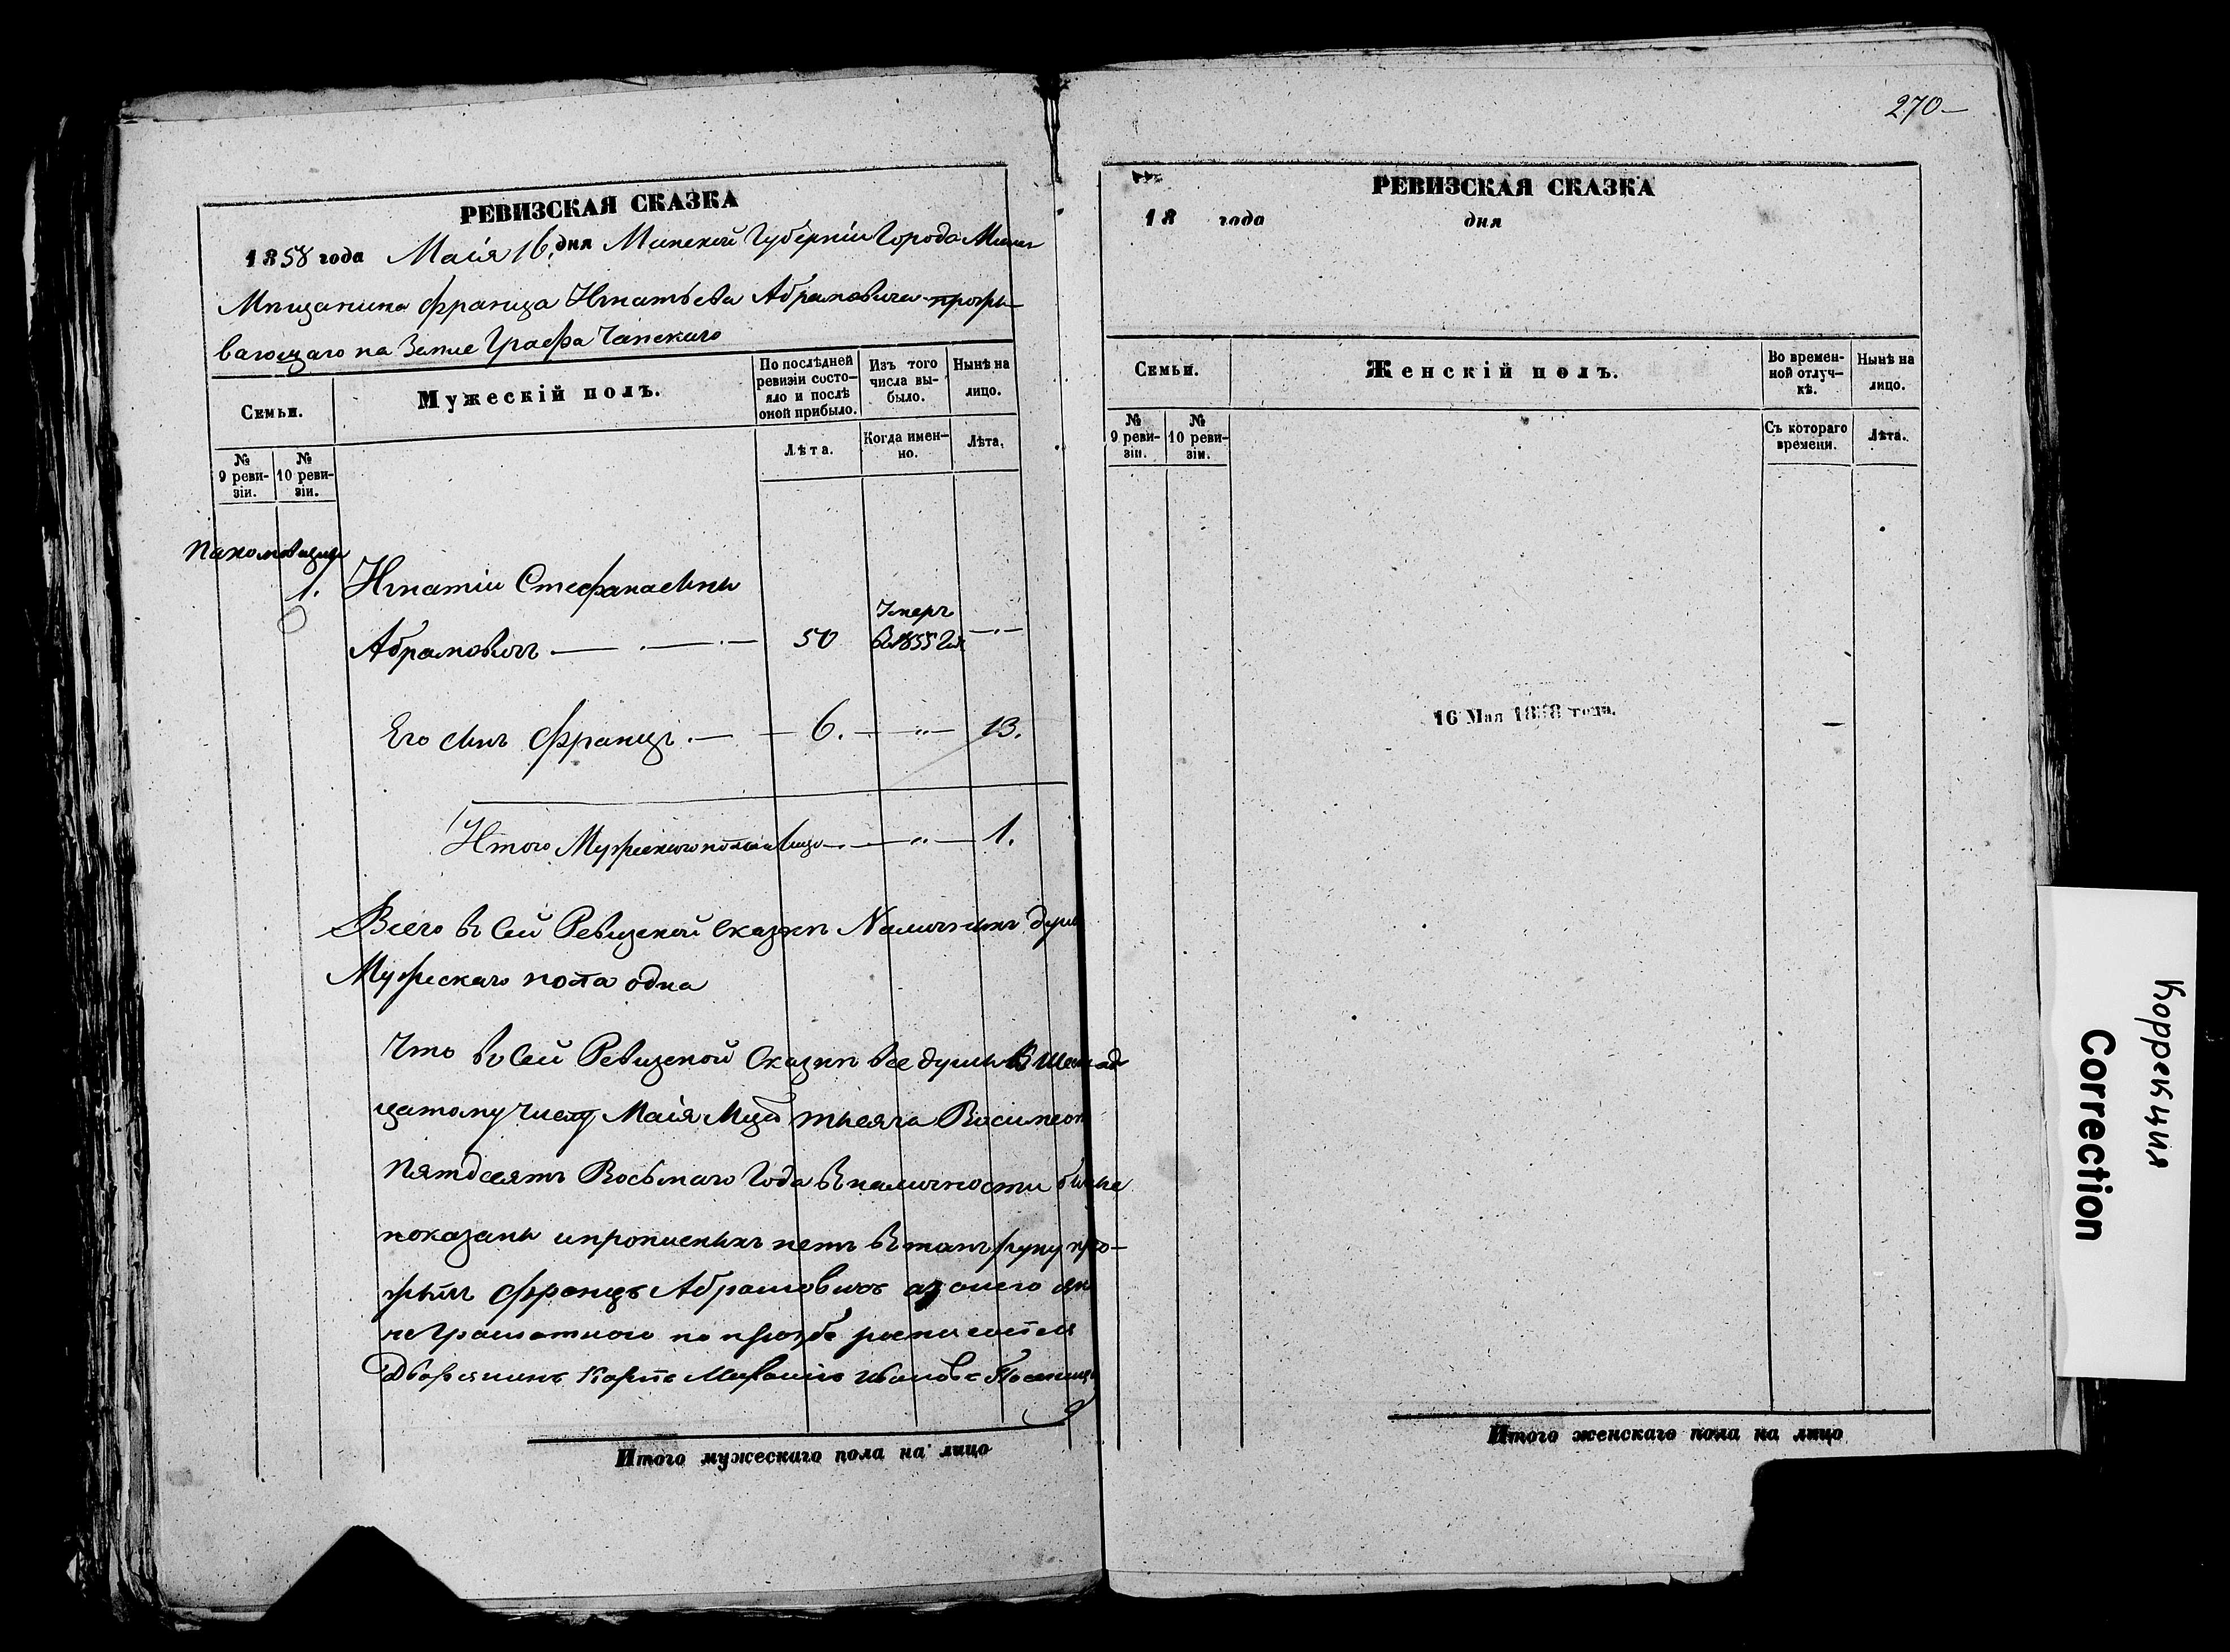 270
РЕВИЗСКАЯ СКАЗКА
1858 года Маія 16. дня Минской Губерніи Города Минс
Мещанина Франца Игнатьева Абрамовича прожи-
вающаго на Земле Графа Чапскаго
Семьи.
Мужескій полъ.
По послѣдней ревизіи состо-яло и послѣ оной прибыло.
Изъ того числа вы-было.
Нынѣ на лицо.
№ 9 реви-зіи.
№ 10 реви-зіи.
Лѣта.
Когда имен-но.
Лѣта.
1. Игнатій Стефанавинъ
Абрамовичъ 50 Умеръ В 1855 Го
Его сынъ Францъ. 6. " 13.
Итого Мужескаго пола на лицо " 1.
Всего въ сей Ревизской сказкѣ Наличныхъ душъ
Мужескаго пола одна
Что въ сей Ревизской Сказкѣ все души
цатому числу Маія Тысяча Восимсот
Пятдесятъ Восьмаго Года в наличности
показаны и прописныхъ нетъ в томъ руку при-
Францъ Абрамовичъ а за онего
неграмотного по прозбе росписался
Дворянинъ
Итого мужескаго пола на лицо
РЕВИЗСКАЯ СКАЗКА
18 года дня
Семьи.
Женскій полъ.
Во времен-ной отлуч-кѣ.
Нынѣ на лицо.
№ 9 реви-зіи.
№ 10 реви-зіи.
Съ котораго времени.
Лѣта.
16 Мая 1858 года.
Итого женскаго пола на лицо
Коррекция
Correction